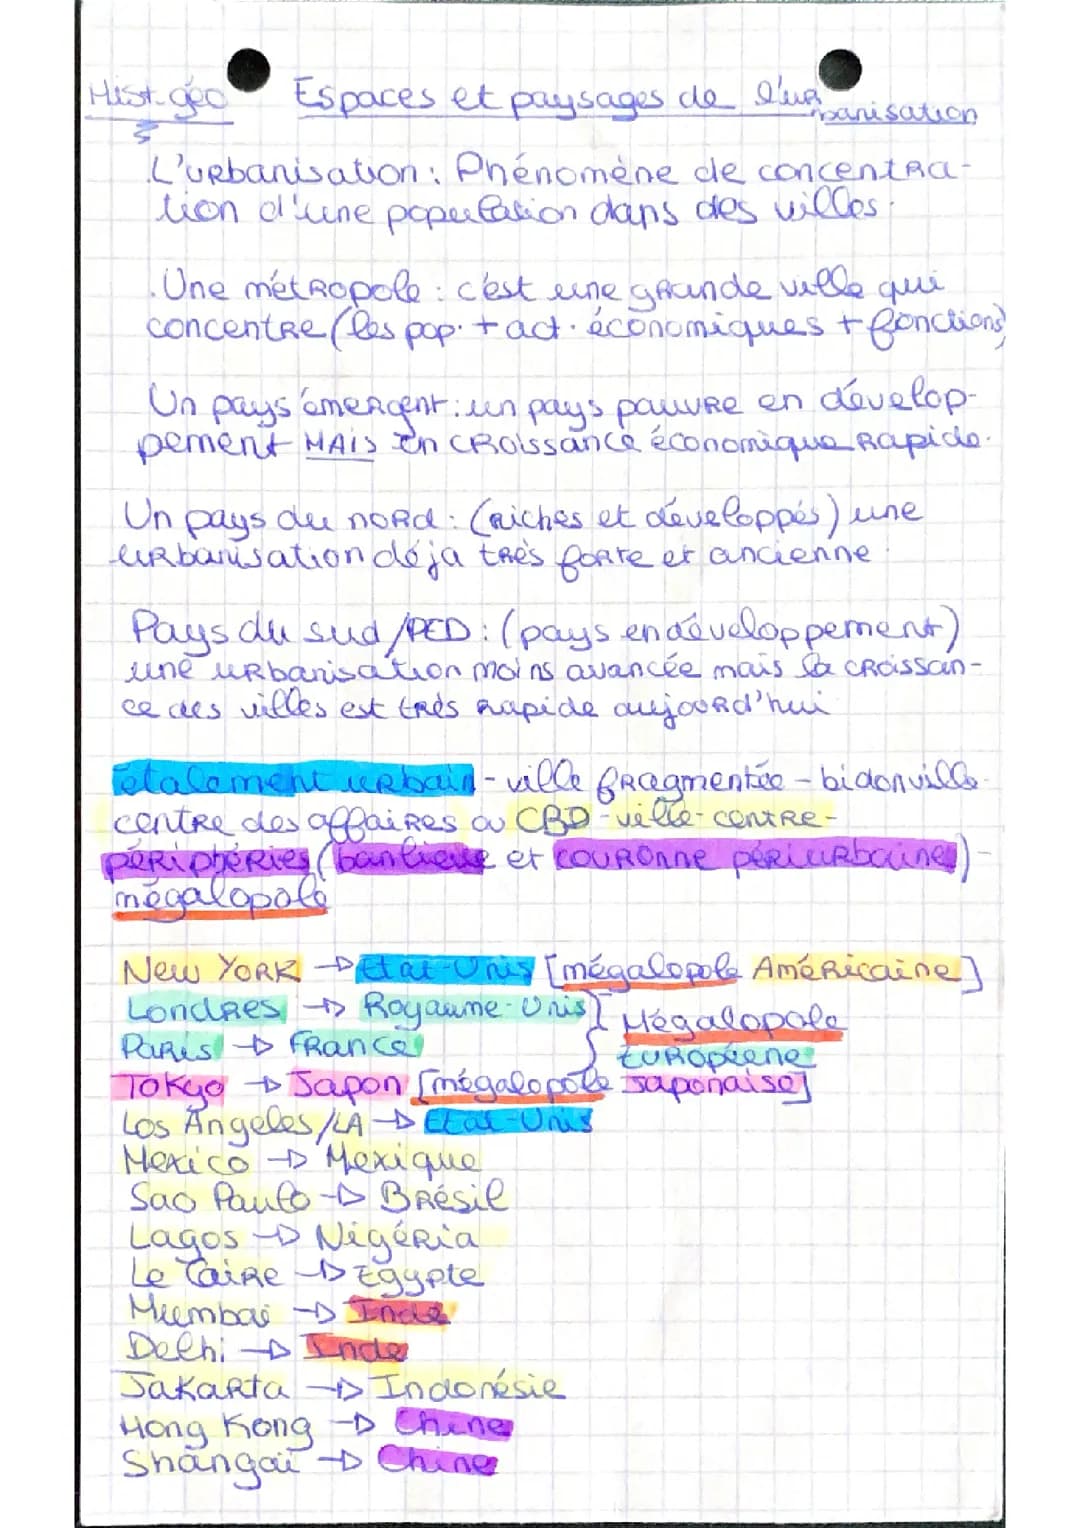 Hist-géo Espaces et paysages de l'urbanisation
L'urbanisation : Phénomène de concentra-
tion d'une population dans des villes.
. Une métropole : c'est une grande ville qui
concentre (les pop. + act. économiques + fonctions)
Un pays émergent : un pays pauvre en dévelop-
pement MAIS En croissance économique rapide.
Un pays du nord : (riches et développés) une
urbanisation déja très forte et ancienne.
Pays du sud /PED : (pays en développement)
une urbanisation moins avancée mais la croissan-
ce des villes est très rapide aujourd'hui
étalement urbain - ville fragmentée - bidonville -
centre des affaires ou CBD - ville-centre -
périphéries (banlieue et couronne périurbaine) -
mégalopole
New York → Etat-Unis [mégalopole Américaine]
Londres → Royaume-Unis } Mégalopole
Paris → France } Européene
Tokyo → Japon [mégalopole japonaise]
Los Angeles/LA → Etat-Unis
Mexico → Mexique
Sao Paulo → Brésil
Lagos → Nigéria
Le Caire → Egypte
Mumbai → Inde
Delhi → Inde
Jakarta → Indonésie
Hong Kong → Chine
Shangaï → Chine